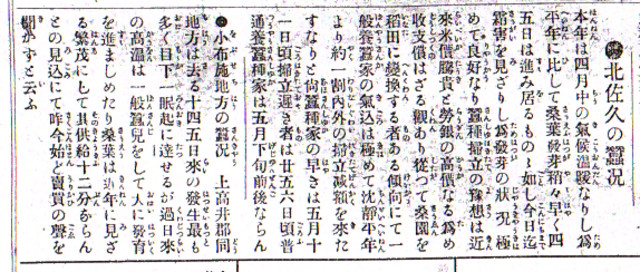 ●北佐久の蠶况
本年は四月中の氣候溫暖なりし爲め
平年に比して桑葉發芽稍々早く四
五日は進み居るものゝ如し今日迄
霜害を見ざりし爲發芽の狀况極
めて良好なり蠶種掃立の豫想は近
來米價騰貴と勞銀の高價なる爲め
收支償はざる觀あり從つて桑園を
稻田に變換する者ある傾向にて一
般養蠶家の氣込は極めて沈靜平年
より約一割內外の掃立減額を來た
すなりと尙蠶種家の早きは五月十
一日頃掃立遲き者は廿五六日頃普
通養蠶種家は五月下旬前後ならん
●小布施地方の蠶况　上高井郡同
地方は去る十四五日來の發生最も
多く目下一眠起に達せるが過日來
の高溫は一般蠶兒をして大に發育
を進ましめたり桑葉は近年に見ざ
る繁茂にして其供給十二分ならん
との見込にて昨今始ど賣買の聲を
聞かずと云ふ